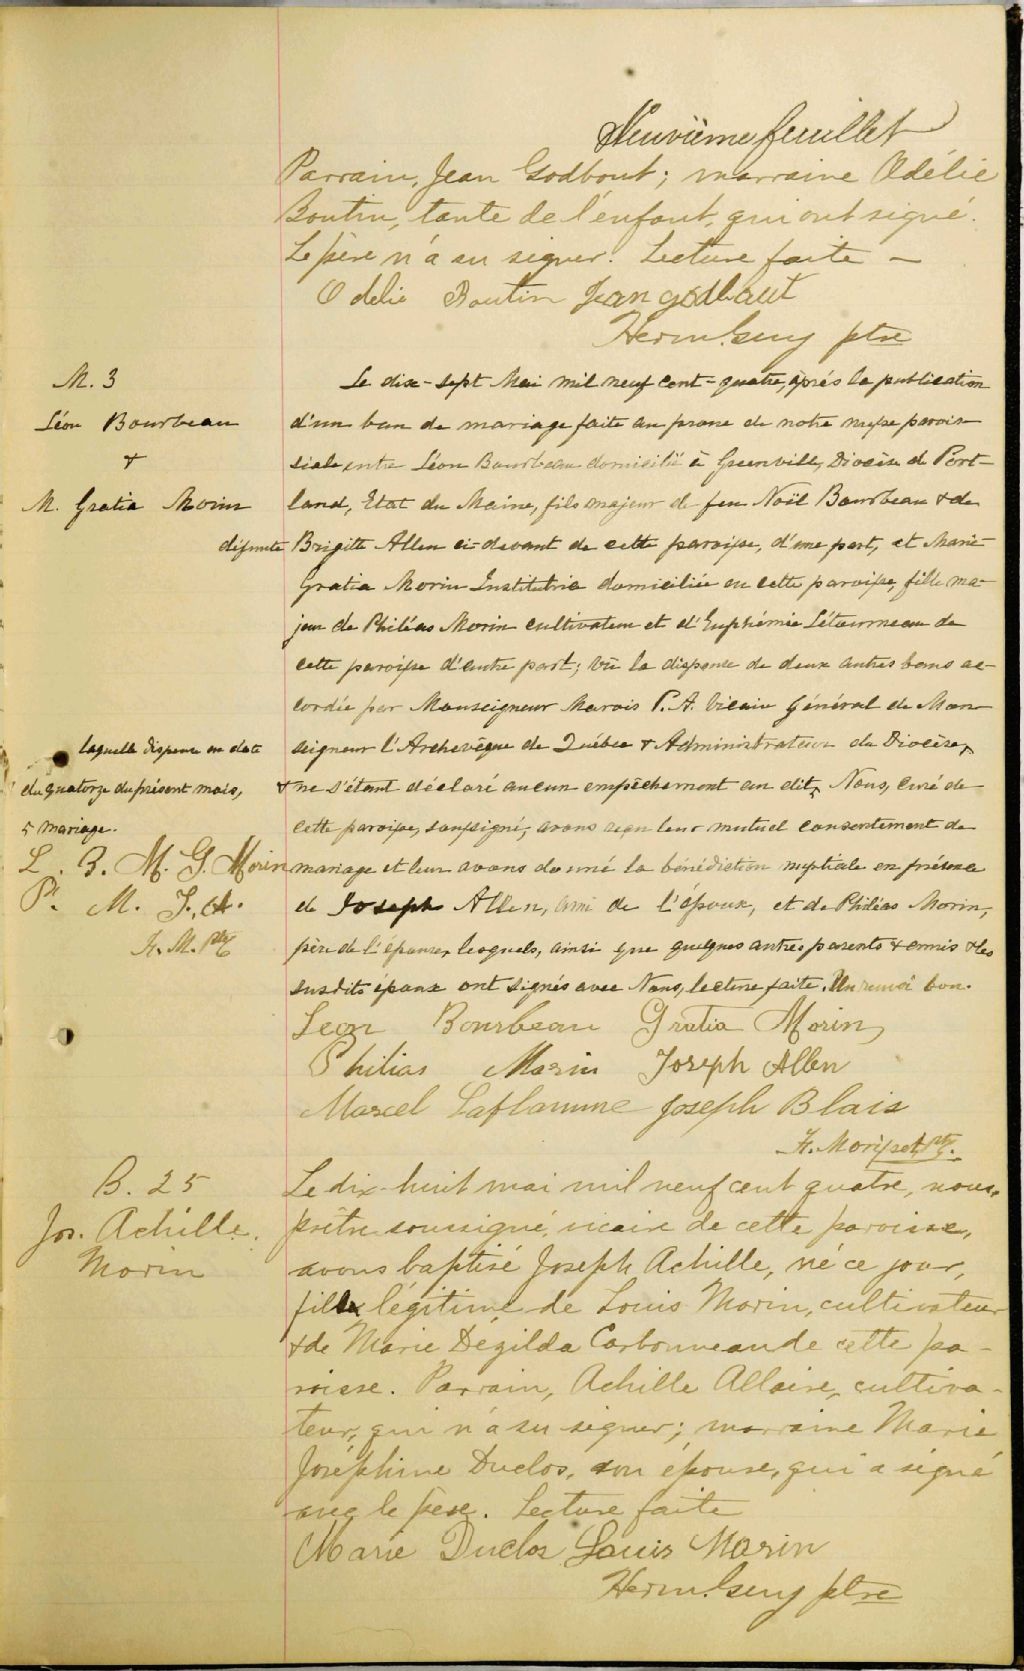 Neuvième feuillet
Parrain, Jean Godbout; marraine Odélie
Boutin, tante de l'enfant, qui ont signé.
Le père n'a su signer. Lecture faite —
Odélie Boutin Jean godbaut
Herm. Guy ptre
M. 3
Léon Bourbeau
&
M. Gratia Morin
Le dix-sept Mai mil neuf cent-quatre, après la publication
d'un ban de mariage faite au prone de notre messe parois-
siale entre Léon Bourbeau domicilié à Greenville, Diocèse de Port-
land, Etat du Maine, fils majeur de feu Noël Bourbeau & de
défunte Brigitte Allen ci-devant de cette paroisse, d'une part, et Marie
Gratia Morin Institutrice domiciliée en cette paroisse, fille ma-
jeure de Philéas Morin cultivateur et d'Euphémie Létourneau de
cette paroisse d'autre part; vu la dispense de deux autres bans ac-
cordée par Monseigneur Marois P. A. Vicaire Général de Mon-
seigneur l'Archevêque de Québec & Administrateur du Diocèse,
laquelle dispense en date
du quatorze du présent mois,
& ne s'étant déclaré aucun empêchement au dit, Nous, curé de
mariage.
cette paroisse, soussigné, avons reçu leur mutuel consentement de
L. B. M. G. Morin
mariage et leur avons donné la bénédiction nuptiale en présence
P. M. J. A.
de Joseph Allen, ami de l'époux, et de Philéas Morin,
H. M. Ptre
père de l'épouse, lesquels, ainsi que quelques autres parents & amis & les
susdits époux ont signés avec Nous, lecture faite. Un renvoi bon.
Leon Bourbeau Gratia Morin
Philias Morin Joseph Allen
Marcel Laflamme Joseph Blais
H. Morisset Ptre.
B. 25
Jos. Achille
Morin
Le dix-huit mai mil neuf cent quatre, nous,
prêtre soussigné, vicaire de cette paroisse,
avons baptisé Joseph Achille, né ce jour,
fils légitime de Louis Morin, cultivateur
& de Marie Dégilda Carbonneau de cette pa-
roisse. Parrain, Achille Allaire, cultiva-
teur, qui n'a su signer; marraine Marie
Joséphine Duclos, son épouse, qui a signé
avec le père. Lecture faite
Marie Duclos Louis Morin
Herm. Guy ptre